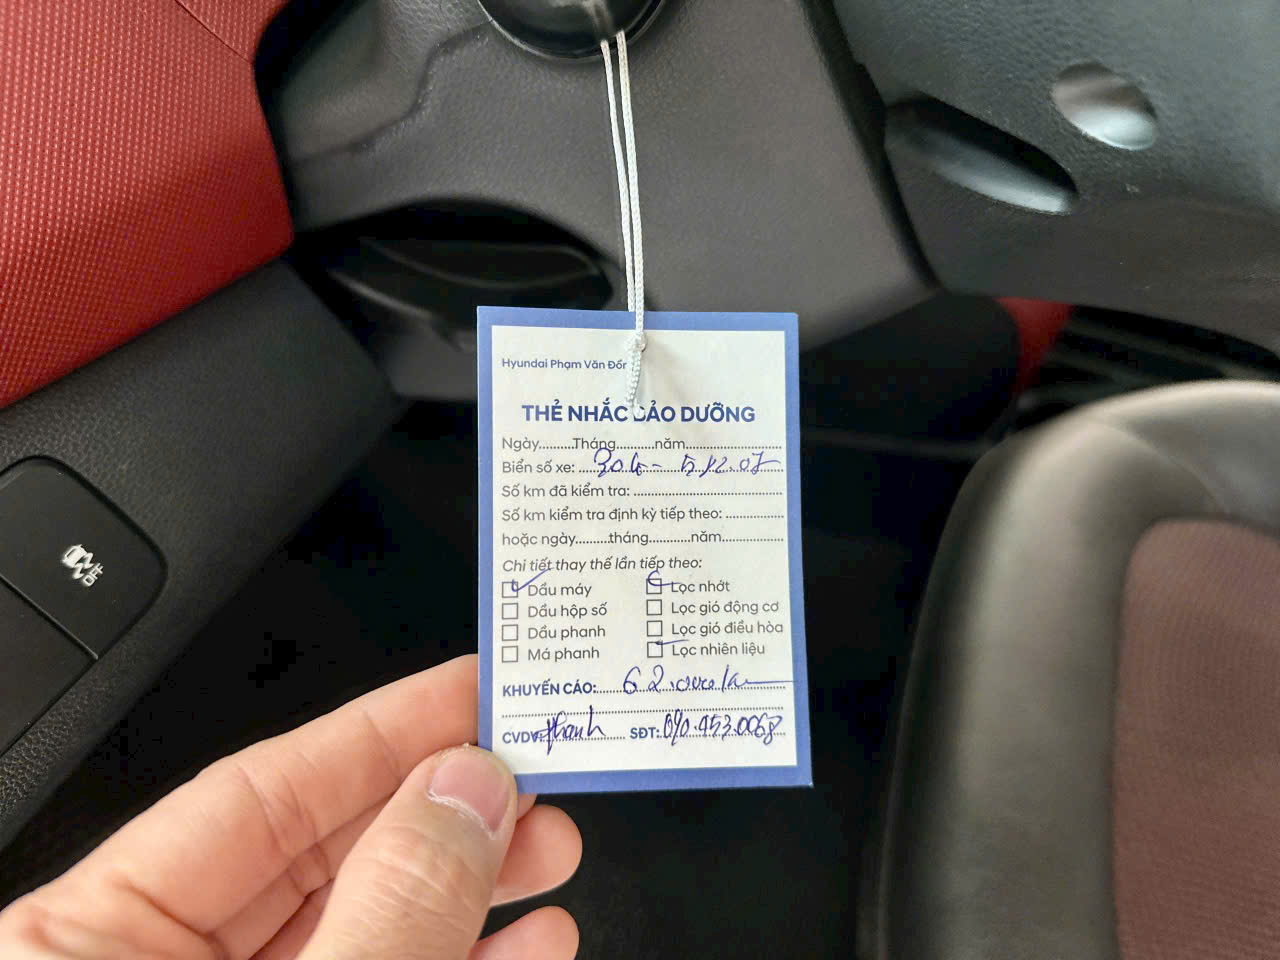 Hyundai Phạm Văn Đồn
THẺ NHẮC BẢO DƯỠNG
Ngày.........Tháng..........năm.........................
Biển số xe: 30K- 512.07
Số km đã kiểm tra: .......................................
Số km kiểm tra định kỳ tiếp theo: ...............
hoặc ngày.........tháng...........năm.................
Chi tiết thay thế lần tiếp theo:
Dầu máy Lọc nhớt
Dầu hộp số Lọc gió động cơ
Dầu phanh Lọc gió điều hòa
Má phanh Lọc nhiên liệu
KHUYẾN CÁO: 62.000 km
CVDV: Thanh SĐT: 090.453.0068